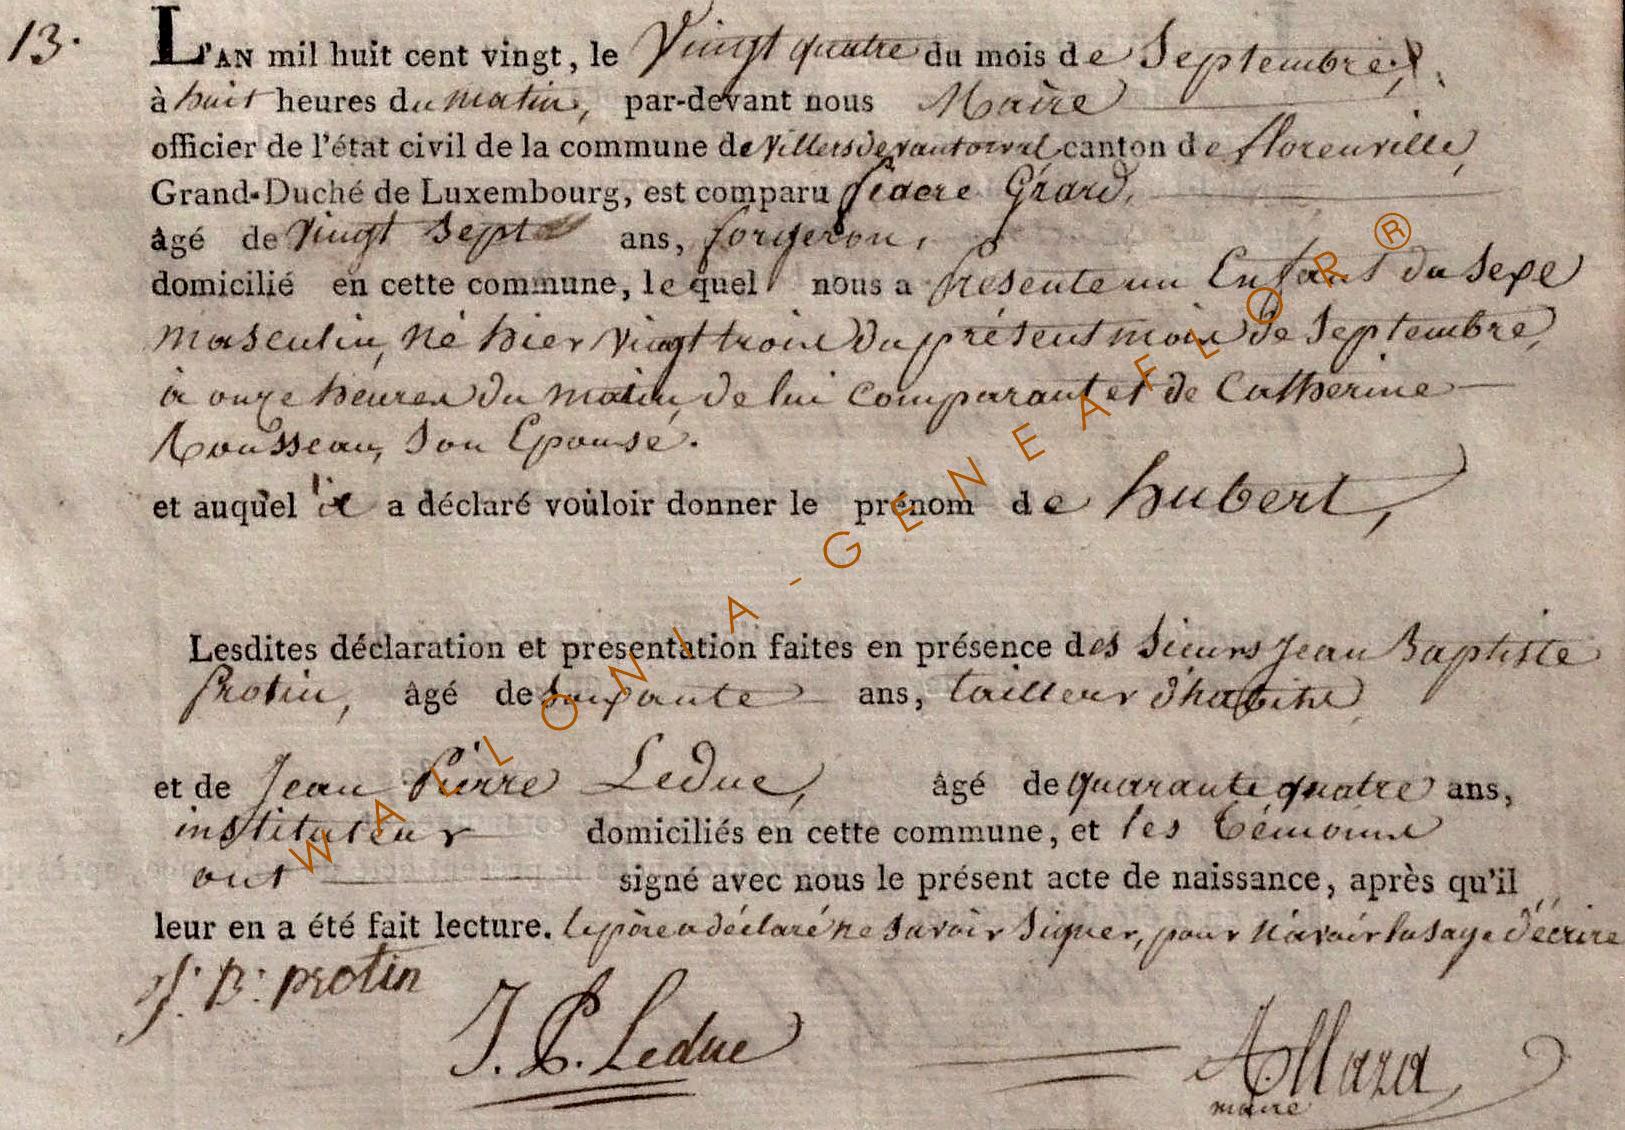 13.
L'AN mil huit cent vingt, le Vingt quatre du mois de Septembre,
à huit heures du matin, par-devant nous Maire
officier de l'état civil de la commune de Villers devant orval canton de florenville,
Grand-Duché de Luxembourg, est comparu fiacre Gérard,
âgé de Vingt Sept ans, forgeron,
domicilié en cette commune, le quel nous a présenté un Enfant du Sexe
masculin, né hier vingt trois du présent mois de Septembre,
à onze heures du matin, de lui comparant et de Catherine
Rousseau, Son Epouse.
et auquel il a déclaré vouloir donner le prénom de hubert,
Lesdites déclaration et presentation faites en présence des Sieurs Jean Baptiste
Protin, âgé de Soixante ans, tailleur d'habits
et de Jean Pierre Leduc, âgé de quarante quatre ans,
instituteur domiciliés en cette commune, et les témoins
ont signé avec nous le présent acte de naissance, après qu'il
leur en a été fait lecture. le père a déclaré ne Savoir Signer, pour n'avoir lusage d'écrire
J. B. protin
J. P. Leduc
A. Maza
maire
WALLONIA-GENEAFLOR®